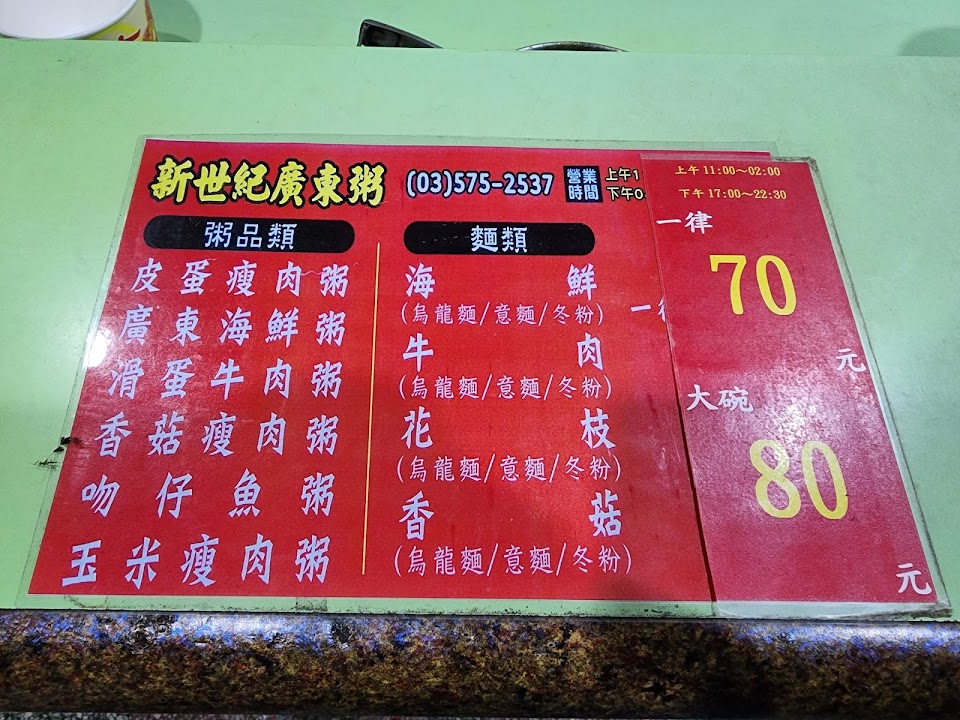 新世紀廣東粥 (03)575-2537 營業時間 上午1 下午0
上午 11:00～02:00
下午 17:00～22:30
粥品類
皮蛋瘦肉粥
廣東海鮮粥
滑蛋牛肉粥
香菇瘦肉粥
吻仔魚粥
玉米瘦肉粥
麵類
海鮮
(烏龍麵/意麵/冬粉)
牛肉
(烏龍麵/意麵/冬粉)
花枝
(烏龍麵/意麵/冬粉)
香菇
(烏龍麵/意麵/冬粉)
一律
70
元
大碗
80
元